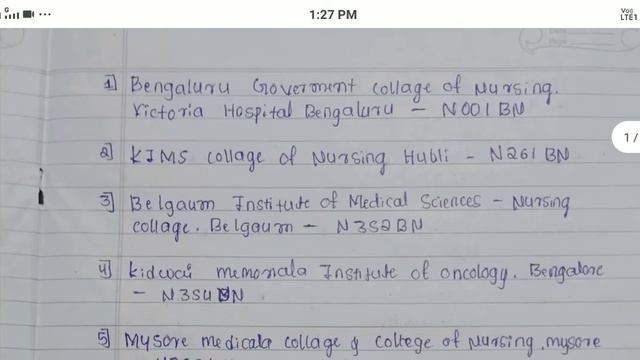 1:27 PM
Vo))
LTE1
1/
1] Bengaluru Goverment collage of Nursing.
Victoria Hospital Bengaluru – N001BN
2] KIMS collage of Nursing Hubli – N261BN
3] Belgaum Institute of Medical Sciences – Nursing
collage. Belgaum – N352BN
4] Kidwai memoriala Institute of oncology. Bengalore
– N354BN
5] Mysore medicala collage & college of Nursing, mysore